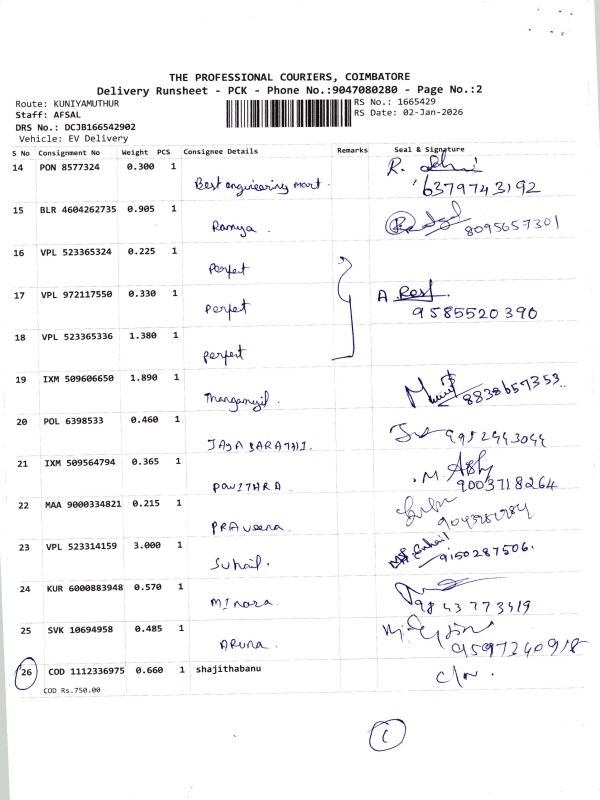 THE PROFESSIONAL COURIERS, COIMBATORE
Delivery Runsheet - PCK - Phone No.:9047080280 - Page No.:2
Route: KUNIYAMUTHUR
Staff: AFSAL
DRS No.: DCJB166542902
Vehicle: EV Delivery
RS No.: 1665429
RS Date: 02-Jan-2026
S No Consignment No Weight PCS Consignee Details Remarks Seal & Signature
14 PON 8577324 0.300 1 Best engineering mart. R. 6379743192
15 BLR 4604262735 0.905 1 Ramya. 8095657301
16 VPL 523365324 0.225 1 Perfect
17 VPL 972117550 0.330 1 Perfect A 9585520390
18 VPL 523365336 1.380 1 Perfect
19 IXM 509606650 1.890 1 8838657353
20 POL 6398533 0.460 1 JAYA BARATHI. 9952443044
21 IXM 509564794 0.365 1 PAVITHRA. M. 9003718264
22 MAA 9000334821 0.215 1 PRAVEENA.
23 VPL 523314159 3.000 1 Suhail. 9150287506.
24 KUR 6000883948 0.570 1 9843773419
25 SVK 10694958 0.485 1 ARUNA. 9597240918
26 COD 1112336975 0.660 1 shajithabanu
COD Rs.750.00